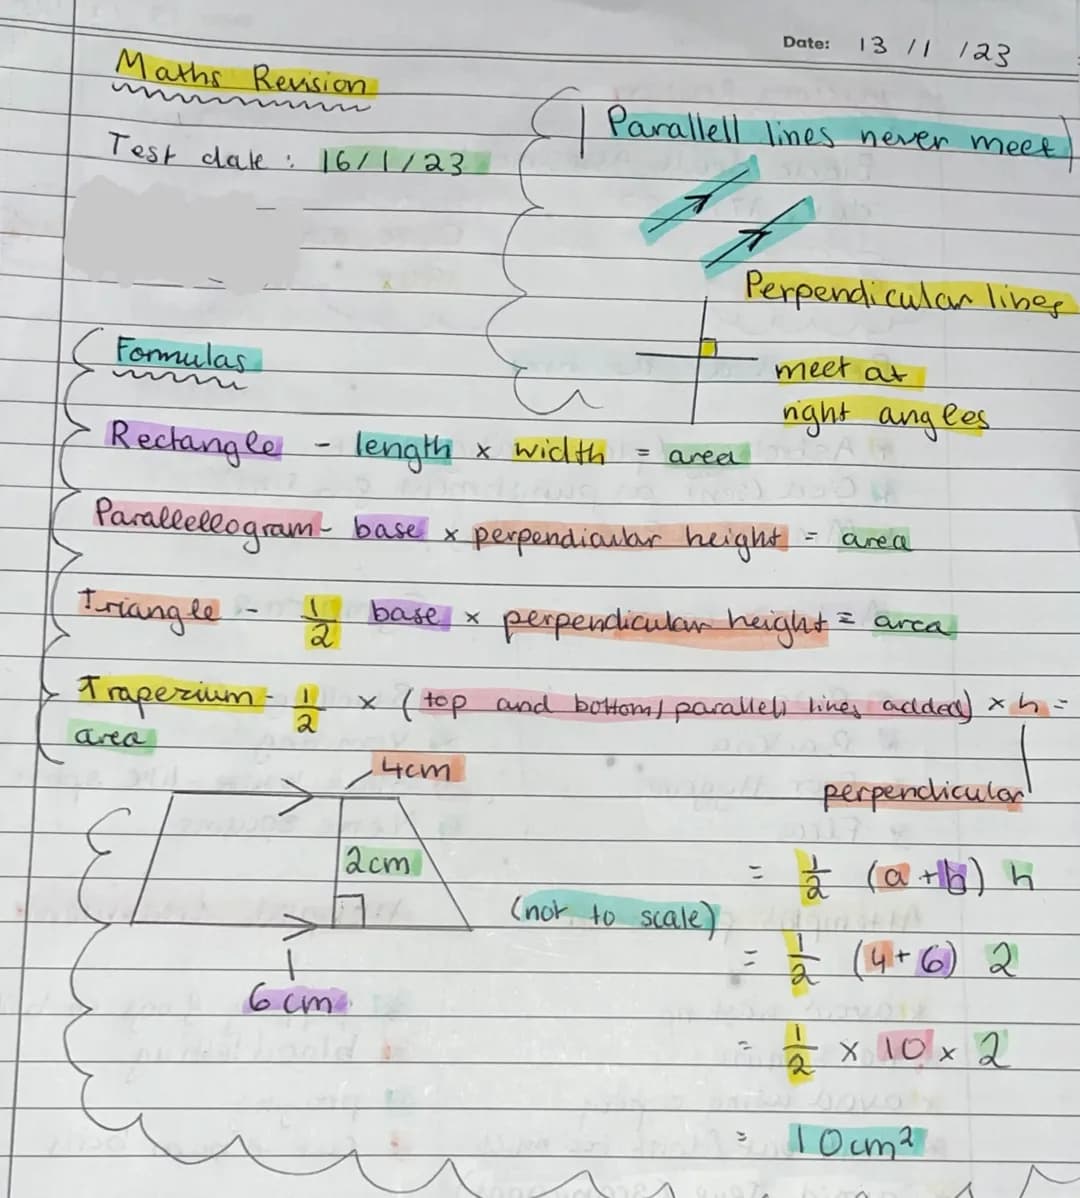 Date: 13 / 1 / 23
Maths Revision
Test date : 16/1/23
Parallell lines never meet
Perpendicular lines
meet at
right angles
Formulas
Rectangle - length x width = area
Parallellogram - base x perpendicular height = area
Triangle - 1/2 base x perpendicular height = area
Traperium - 1/2 x (top and bottom / parallell lines added) x h =
area
perpendicular
4cm
2cm
6cm
(not to scale)
= 1/2 (a + b) h
= 1/2 (4 + 6) 2
= 1/2 x 10 x 2
= 10cm²